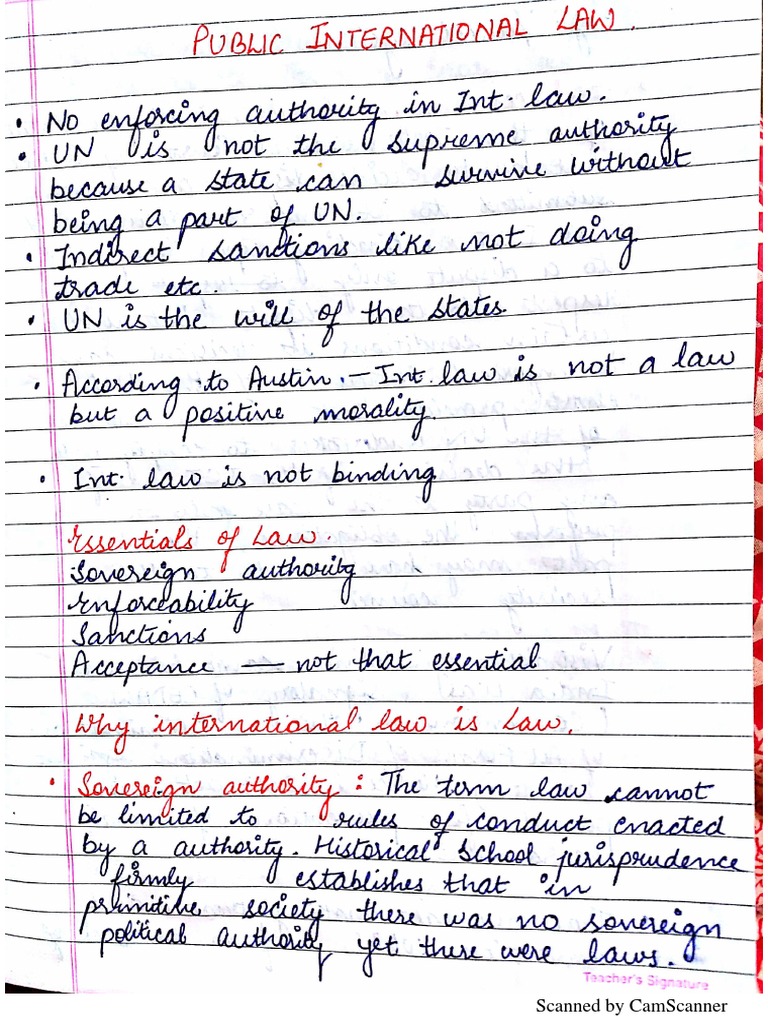 PUBLIC INTERNATIONAL LAW.
• No enforcing authority in Int. law.
• UN is not the supreme authority
because a state can survive without
being a part of UN.
• Indirect sanctions like not doing
trade etc.
• UN is the will of the states.
• According to Austin. – Int. law is not a law
but a positive morality.
• Int. law is not binding
Essentials of Law.
Sovereign authority
Enforceability
Sanctions
Acceptance — not that essential
Why international law is Law.
• Sovereign authority : The term law cannot
be limited to rules of conduct enacted
by a authority. Historical School jurisprudence
firmly establishes that in
primitive society there was no sovereign
political authority yet there were laws.
Teacher's Signature
Scanned by CamScanner